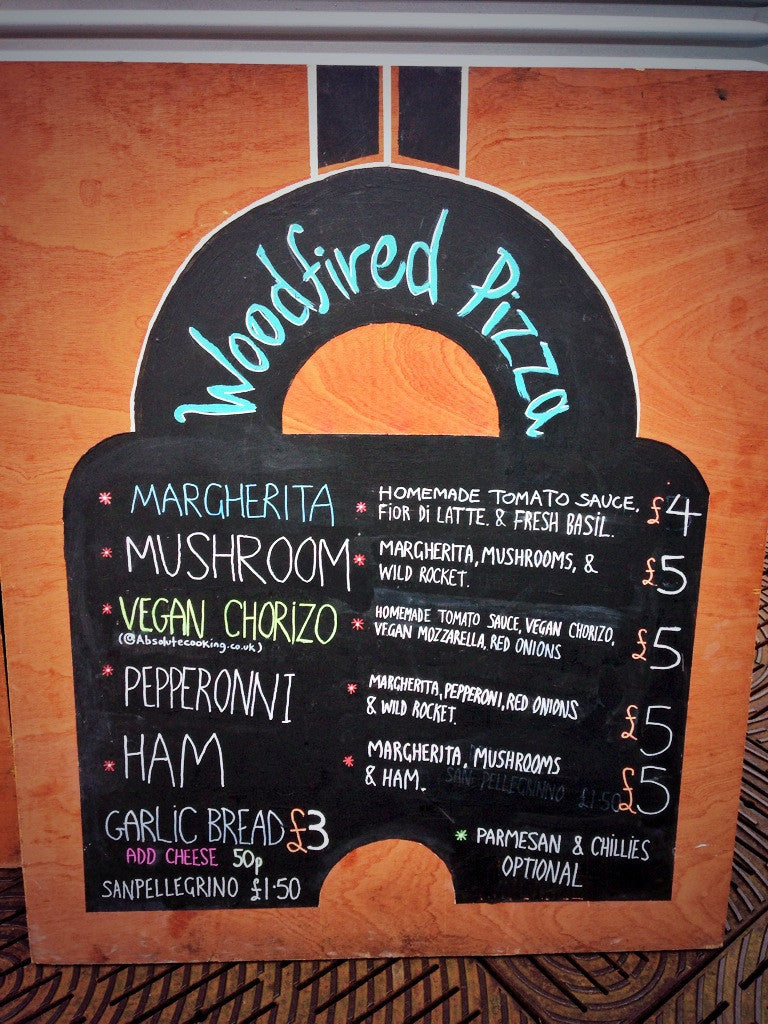 Woodfired Pizza
* MARGHERITA * HOMEMADE TOMATO SAUCE. £4
FIOR Di LATTE. & FRESH BASIL.
* MUSHROOM * MARGHERITA, MUSHROOMS, & £5
WILD ROCKET.
* VEGAN CHORIZO * HOMEMADE TOMATO SAUCE, VEGAN CHORIZO, £5
(@Absolutecooking.co.uk) VEGAN MOZZARELLA, RED ONIONS
* PEPPERONNI * MARGHERITA, PEPPERONI, RED ONIONS £5
& WILD ROCKET.
* HAM * MARGHERITA, MUSHROOMS £5
& HAM.
SAN PELLEGRINNO £1.50
GARLIC BREAD £3
ADD CHEESE 50p
SANPELLEGRINO £1.50
* PARMESAN & CHILLIES
OPTIONAL